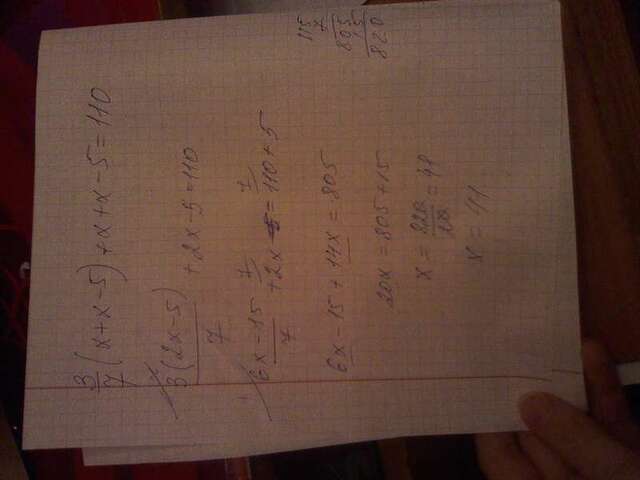 3/7 (x+x-5)+x+x-5=110
3(2x-5)/7 +2x-5=110
6x-15/7 +2x = 110+5
6x-15+14x=805
20x=805+15
x=820/20=41
x=41
115
7
805
15
820